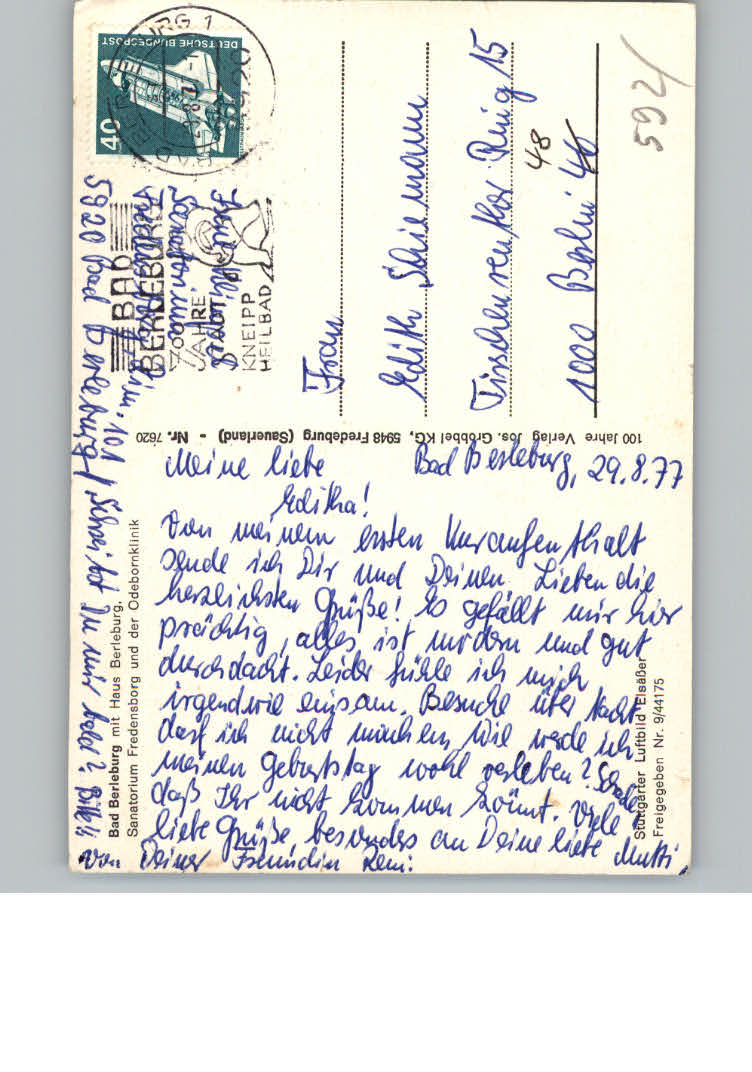 Meine liebe Bad Berleburg, 29.8.77
Editha!
Von meinem ersten Kuraufenthalt
sende ich Dir und Deinen Lieben die
herzlichsten Grüße! Es gefällt mir hier
prächtig, alles ist modern und gut
durchdacht. Leider fühle ich mich
irgendwie einsam. Besuche über Nacht
darf ich nicht machen, wie werde ich
meinen Geburtstag wohl verleben? Schade,
daß Ihr nicht kommen könnt. Viele
liebe Grüße besonders an Deine liebe Mutti,
von Deiner Freundin Leni.
Sanatorium
Zim. 101
5920 Bad Berleburg / Schreibst Du mir bald? Bitte!!
Bad Berleburg mit Haus Berleburg,
Sanatorium Fredensborg und der Odebornklinik
Stuttgarter Luftbild Elsäßer
Freigegeben Nr. 9/44175
100 Jahre Verlag Jos. Gröbbel KG, 5948 Fredeburg (Sauerland) - Nr. 7620
DEUTSCHE BUNDESPOST
40
5920
BAD
BERLEBURG
700
JAHRE
STADT
KNEIPP
HEILBAD
Frau
Edith
Ring 15
48
1000 Berlin 46
592